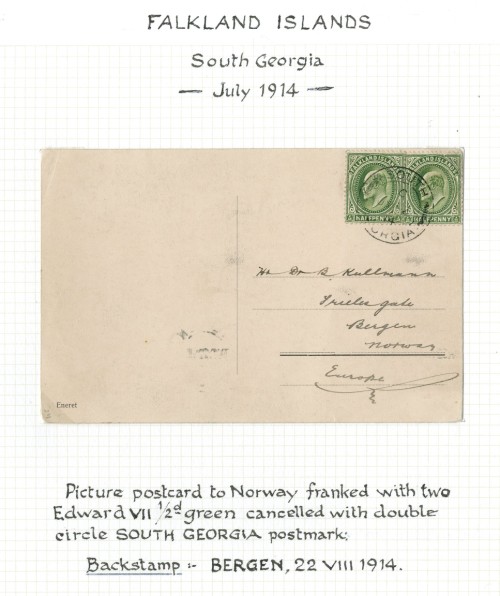 FALKLAND ISLANDS
South Georgia
— July 1914 —
FALKLAND ISLANDS FALKLAND ISLANDS
HALFPENNY HALFPENNY
SOUTH
GEORGIA
Hr Dr B. Kullmann
gate
Bergen
Norway
Europe
Eneret
Picture postcard to Norway franked with two
Edward VII ½d green cancelled with double
circle SOUTH GEORGIA postmark;
Backstamp :- BERGEN, 22 VIII 1914.